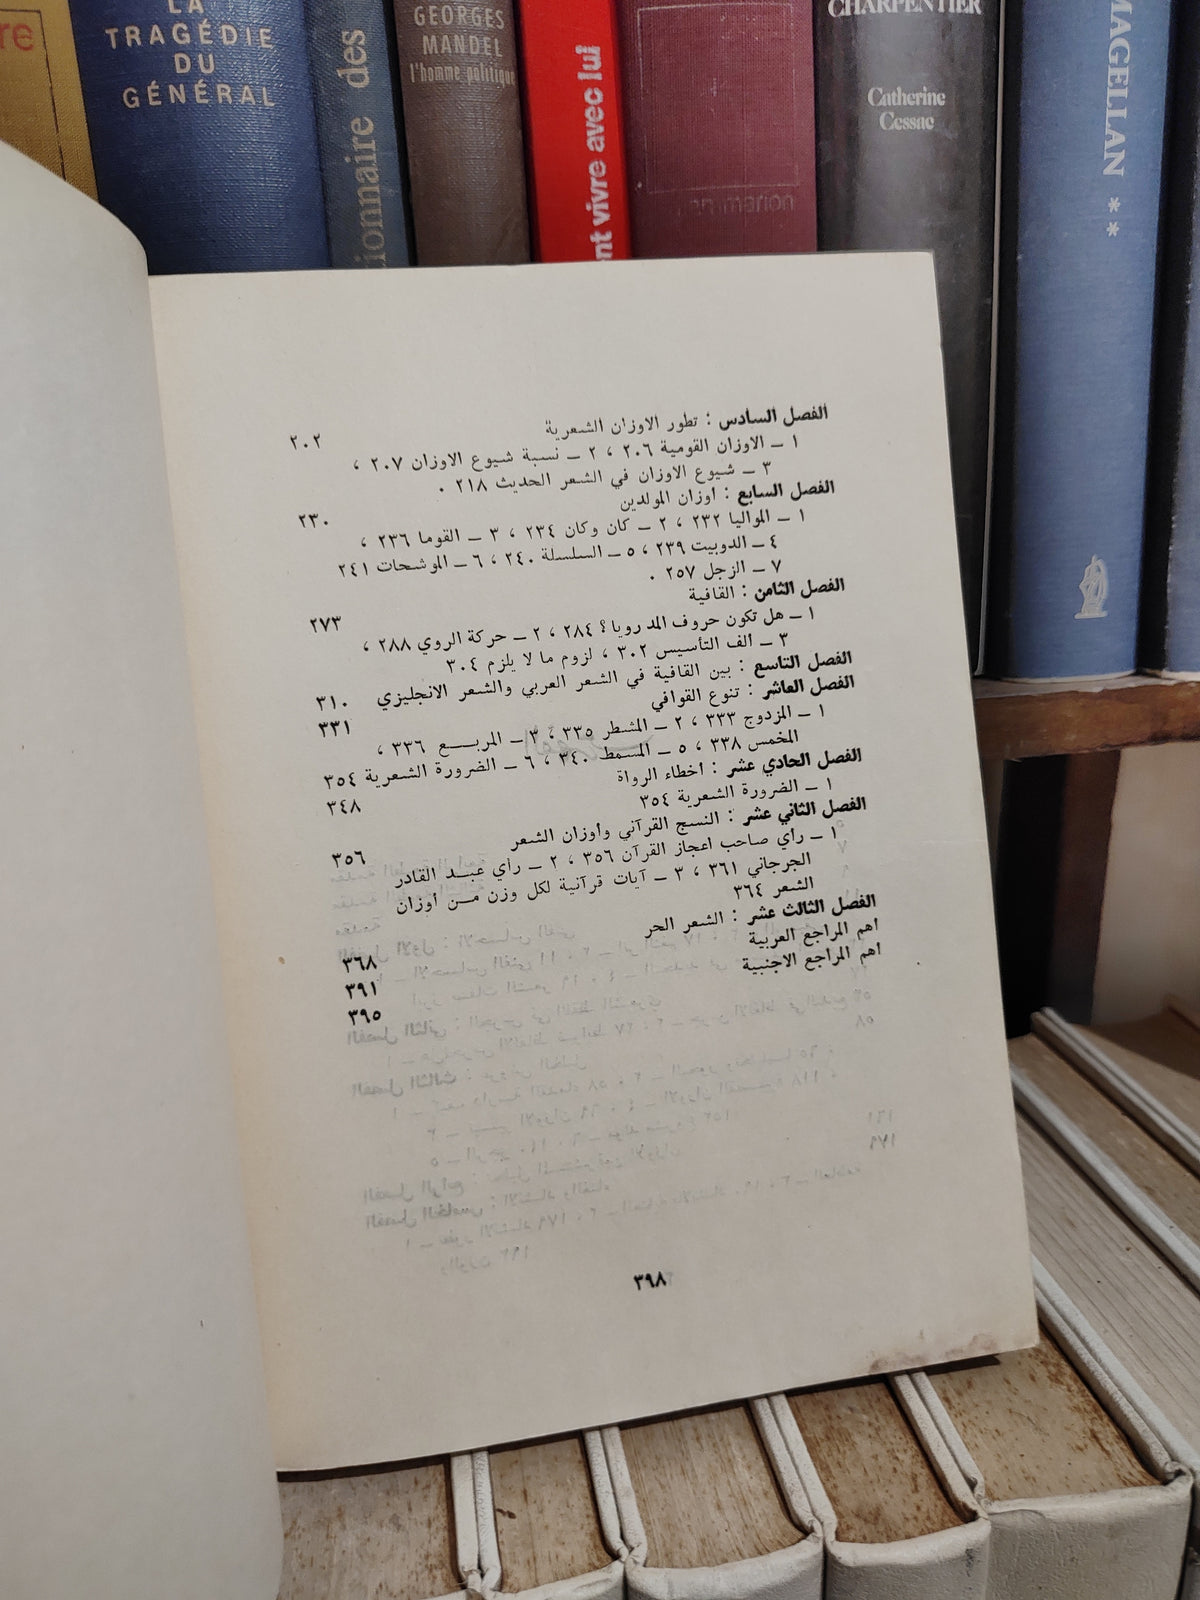 LA
TRAGÉDIE
DU
GÉNÉRAL
des
GEORGES
MANDEL
l'homme politique
vivre avec lui
CHARPENTIER
Catherine
Cessac
MAGELLAN **
الفصل السادس : تطور الاوزان الشعرية ٢٠٢
١ ــ الاوزان القومية ٢٠٦ ، ٢ ــ نسبة شيوع الاوزان ٢٠٧ ،
٣ ــ شيوع الاوزان في الشعر الحديث ٢١٨ .
الفصل السابع : اوزان المولدين ٢٣٠
١ ــ المواليا ٢٣٢ ، ٢ ــ كان وكان ٢٣٤ ، ٣ ــ القوما ٢٣٦ ،
٤ ــ الدوبيت ٢٣٩ ، ٥ ــ السلسلة ٢٤٠ ، ٦ ــ الموشحات ٢٤١
٧ ــ الزجل ٢٥٧ .
الفصل الثامن : القافية ٢٧٣
١ ــ هل تكون حروف المد رويا ؟ ٢٨٤ ، ٢ ــ حركة الروي ٢٨٨ ،
٣ ــ الف التأسيس ٣٠٢ ، لزوم ما لا يلزم ٣٠٤
الفصل التاسع : بين القافية في الشعر العربي والشعر الانجليزي ٣١٠
الفصل العاشر : تنوع القوافي ٣٣١
١ ــ المزدوج ٣٣٣ ، ٢ ــ المشطر ٣٣٥ ، ٣ ــ المربع ٣٣٦ ،
المخمس ٣٣٨ ، ٥ ــ المسمط ٣٤٠ ، ٦ ــ الضرورة الشعرية ٣٥٤
الفصل الحادي عشر : اخطاء الرواة ٣٤٨
١ ــ الضرورة الشعرية ٣٥٤
الفصل الثاني عشر : النسج القرآني وأوزان الشعر ٣٥٦
١ ــ رأي صاحب اعجاز القرآن ٣٥٦ ، ٢ ــ رأي عبد القادر
الجرجاني ٣٦١ ، ٣ ــ آيات قرآنية لكل وزن من أوزان
الشعر ٣٦٤
الفصل الثالث عشر : الشعر الحر ٣٦٨
اهم المراجع العربية ٣٩١
اهم المراجع الاجنبية ٣٩٥
٣٩٨